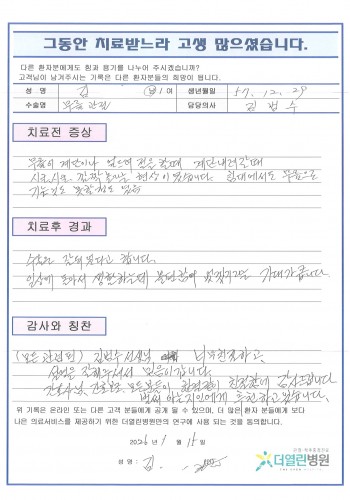 그동안 치료받느라 고생 많으셨습니다.
다른 환자분에게도 힘과 용기를 나누어 주시겠습니까?
고객님이 남겨주시는 기록은 다른 환자분들의 희망이 됩니다.
성 명 김 남 / 여 생년월일 57. 12. 29
수술명 무릎관절 담당의사 김범수
치료전 증상
무릎이 계단이나 계단내려갈때
시큰시큰 깜짝놀라는 현상이 있었습니다. 침대에서도 무릎으로
치료후 경과
수술이 잘되었다고 합니다.
일상에 돌아서 생활하는데 불편함이 없겠기로 기대가 큽니다
감사와 칭찬
김범수선생님 너무친절하고
설명을 잘해주셔서 믿음이갑니다.
간호사님, 모든분들이 친절함에 감사드립니다
벌써 아는지인에게 추천하고있습니다.
위 기록은 온라인 또는 다른 고객 분들에게 공개 될 수 있으며, 더 많은 환자 분들에게 보다
나은 의료서비스를 제공하기 위한 더열린병원만의 연구에 사용 되는 것을 동의합니다.
2026년 1월 15일
성 명 : 김
더열린병원